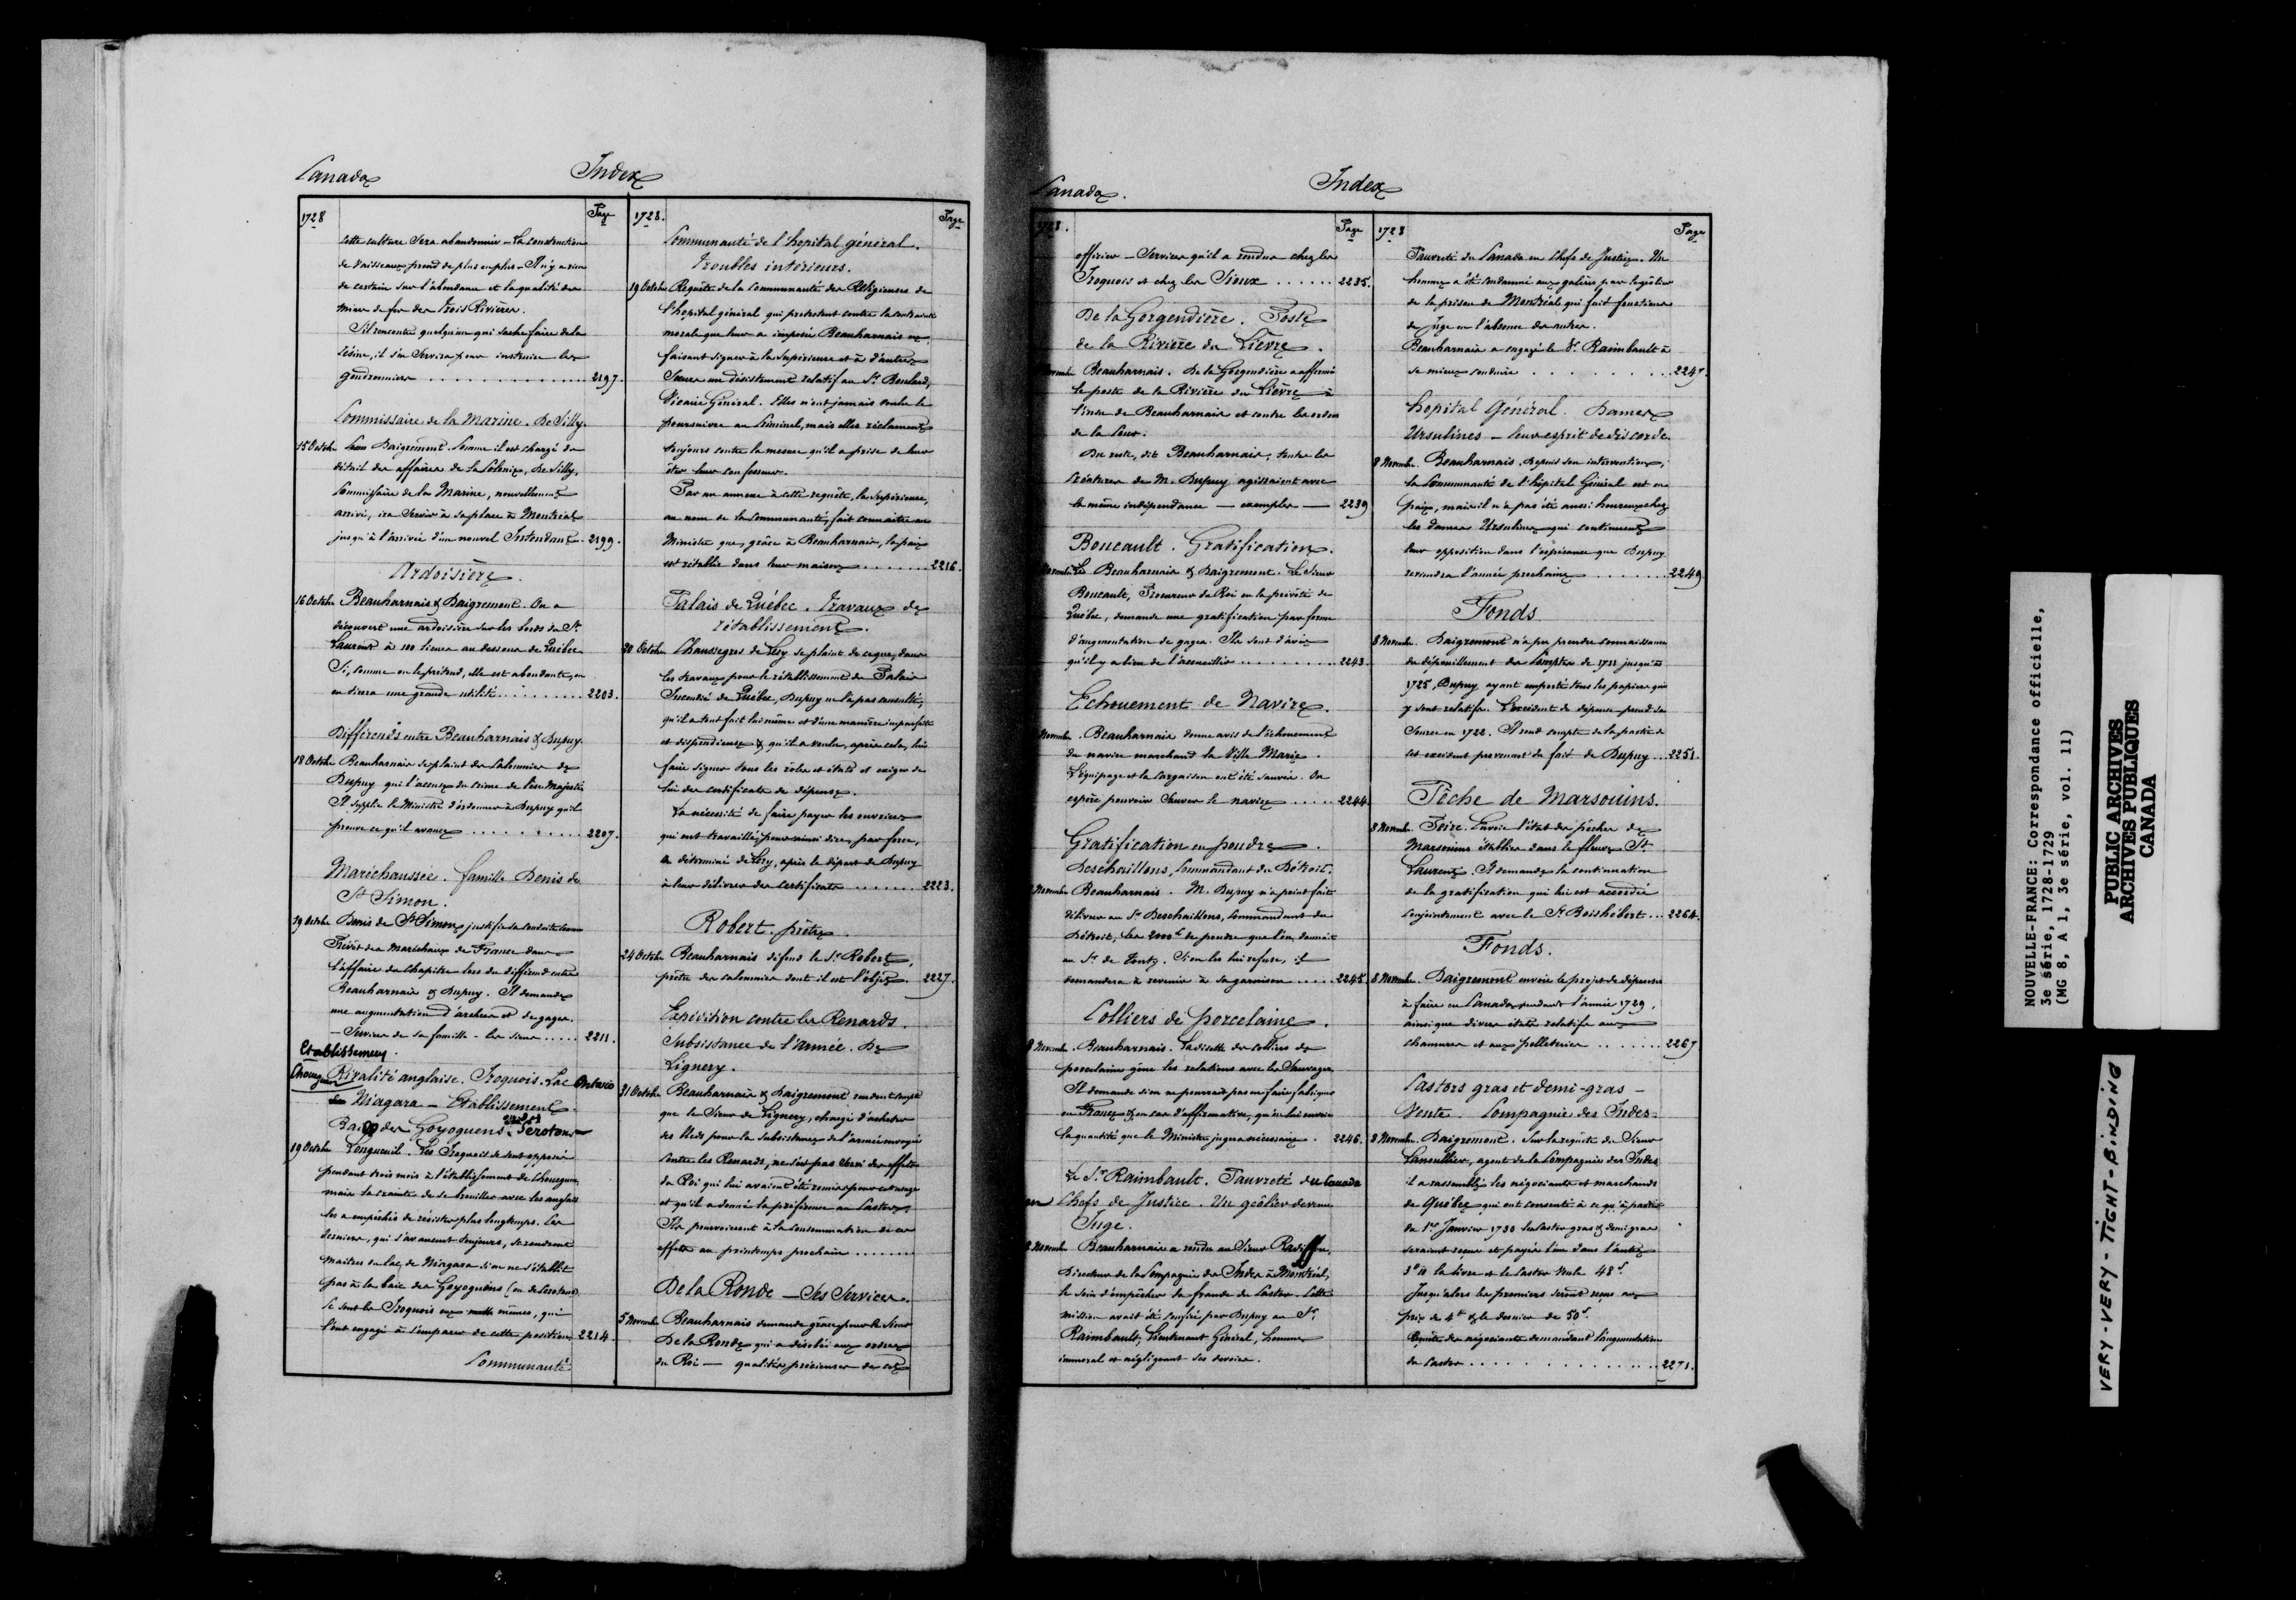 Canada
Index
1728
Page
cette culture sera abandonnée – La construction
de vaisseaux prend de plus en plus – Il n'y a rien
de certain sur l'abondance et la qualité des
mines de fer des Trois Rivières.
S'il rencontre quelqu'un qui sache faire de la
résine, il s'en servira pour instruire les
goudronniers . . . . . . . . . . . . . 2197.
Commissaire de la Marine. De Silly.
15 Octobre Daigremont. Comme il est chargé du
détail des affaires de la Colonie, De Silly,
Commissaire de la Marine, nouvellement
arrivé, ira servir à sa place à Montréal
jusqu'à l'arrivée d'un nouvel Intendant. 2199.
Ardoisière.
16 Octobre Beauharnais & Daigremont. On a
découvert une ardoisière sur les bords du St
Laurent à 100 lieues au dessous de Québec
Si, comme on le prétend, elle est abondante, on
en tirera une grande utilité . . . . . . . . . 2203.
Différends entre Beauharnais & Dupuy.
18 Octobre Beauharnais se plaint des calomnies de
Dupuy qui l'accuse du crime de lèse Majesté
Il supplie le Ministre d'ordonner à Dupuy qu'il
prouve ce qu'il avance . . . . . . . . . . 2207.
Maréchaussée. famille Denis de
St Simon.
19 Octobre Denis de St Simon justifie sa conduite comme
Prévôt des Maréchaux de France dans
l'affaire du Chapitre lors du différend entre
Beauharnais & Dupuy. Il demande
une augmentation d'archers et de gages.
– Services de sa famille – les siens . . . . . 2211.
Etablissement
Chouaguen Rivalité anglaise. Iroquois. Lac Ontario
de Niagara – Etablissement
Baie des Goyoguens ou des Terotons
19 Octobre Longueuil. Les Iroquois se sont opposés
pendant trois mois à l'établissement de Choueguen
mais la crainte de se brouiller avec les anglais
les a empêchés de résister plus longtemps. Ces
derniers, qui s'avancent toujours, se rendront
maîtres du lac de Niagara si on ne s'établit
pas à la baie des Goyoguens (ou des Terotons)
Ce sont les Iroquois eux mêmes, qui
l'ont engagé à s'emparer de cette position 2214.
Communauté
1728.
Page
Communauté de l'hopital général.
Troubles intérieurs.
19 Octobre Requête de la Communauté des Religieuses de
l'hopital général qui protestent contre la contrainte
morale que leur a imposée Beauharnais en
faisant signer à la Supérieure et à d'autres
Sœurs un désistement relatif au Sr Boulard,
Vicaire Général. Elles n'ont jamais voulu le
poursuivre au Criminel, mais elles réclament
toujours contre la mesure qu'il a prise de leur
ôter leur confesseur.
Par un annexe à cette requête, la Supérieure,
au nom de la Communauté, fait connaître au
Ministre que, grâce à Beauharnais, la paix
est rétablie dans leur maison . . . . . . . 2216.
Palais de Québec. Travaux de
rétablissement.
20 Octobre Chaussegros de Léry se plaint de ce que, dans
les travaux pour le rétablissement du Palais
Incendié de Québec, Dupuy ne l'a pas consulté,
qu'il a tout fait lui même et d'une manière imparfaite
et dispendieuse & qu'il a voulu, après cela, lui
faire signer tous les rôles et états et exiger de
lui des certificats de dépense.
La nécessité de faire payer les ouvriers
qui ont travaillé, pour ainsi dire, par force,
a déterminé de Léry, après le départ de Dupuy
à leur délivrer des certificats . . . . . . . 2223.
Robert, prêtre
24 Octobre Beauharnais défend le Sr Robert,
prêtre des calomnies dont il est l'objet. 2227.
Expédition contre les Renards.
Subsistance de l'armée. De
Lignery.
31 Octobre Beauharnais & Daigremont rendent compte
que le Sieur de Lignery, chargé d'acheter
des bleds pour la subsistance de l'armée envoyée
contre les Renards, ne s'est pas servi des effets
du Roi qui lui avaient été remis pour cet usage
et qu'il a donné la préférence au Castor.
Ils pourvoieront à la consommation de ces
effets au printemps prochain . . . . . . .
De la Ronde – Ses Services.
5 Novembre Beauharnais demande grâce pour le Sieur
De la Ronde qui a désobéi aux ordres
du Roi – qualités précieuses de cet
Canada.
Index
1728.
Page
officier – Services qu'il a rendus chez les
Iroquois et chez les Sioux . . . . . . 2235.
De la Gorgendière. Poste
de la Rivière du Lièvre.
Novembre Beauharnais. De la Gorgendière a affermé
le poste de la Rivière du Lièvre à
l'insu de Beauharnais et contre les ordres
de la Cour.
Du reste, dit Beauharnais, toutes les
Créatures de M. Dupuy agissaient avec
la même indépendance – exemples – 2239
Boucault. Gratification.
Novembre Beauharnais & Daigremont. Le Sieur
Boucault, Procureur du Roi en la prévôté de
Québec, demande une gratification par forme
d'augmentation de gages. Ils sont d'avis
qu'il y a lieu de l'accueillir . . . . . . . . 2243.
Echouement de Navire.
Novembre. Beauharnais donne avis de l'échouement
du navire marchand la Ville Marie.
L'équipage et la Cargaison ont été sauvés. On
espère pouvoir sauver le navire . . . . . 2244.
Gratification en poudre.
Deschaillons, Commandant du Détroit.
Novembre Beauharnais. M. Dupuy n'a point fait
délivrer au Sr Deschaillons, Commandant du
Détroit, les 2000 l de poudre que l'on donnait
au Sr de Tonty. Si on les lui refuse, il
demandera à revenir à sa garnison . . . . . 2245.
Colliers de porcelaine.
8 Novembre. Beauharnais. La disette des colliers de
porcelaine gêne les relations avec les Sauvages
Il demande si on ne pourrait pas en faire fabriquer
en France & en cas d'affirmative, qu'on lui envoie
la quantité que le Ministre jugera nécessaire. 2246.
Le Sr Raimbault. Pauvreté du Canada
en Chefs de Justice. Un geôlier devenu
Juge.
8 Novembre Beauharnais a rendu au Sieur Radisson,
Directeur de la Compagnie des Indes à Montréal,
le soin d'empêcher la fraude du Castor. Cette
mission avait été confiée par Dupuy au Sr
Raimbault, Lieutenant Général, homme
immoral et négligeant ses devoirs.
1728
Page
Pauvreté du Canada en Chefs de Justice. Un
homme a été condamné aux galères par le geôlier
de la prison de Montréal qui fait fonctions
de Juge en l'absence des autres.
Beauharnais a engagé le Sr Raimbault à
se mieux conduire . . . . . . . . . 2247.
hopital Général. Dames
Ursulines – leur esprit de discorde.
8 Novembre. Beauharnais. Depuis son intervention,
la Communauté de l'hôpital Général est en
paix, mais il n'a pas été aussi heureux chez
les dames Ursulines qui continuent
leur opposition dans l'espérance que Dupuy
reviendra l'année prochaine . . . . . . . 2249.
Fonds.
8 Novembre. Daigremont n'a pu prendre connaissance
du dépouillement des Comptes de 1721 jusqu'à
1725, Dupuy ayant emporté tous les papiers qui
y sont relatifs. L'excédent de dépense prend sa
source en 1722. Il rend compte de la partie de
cet excédent provenant du fait de Dupuy . . 2251.
Pêche de Marsouins.
8 Novembre. Peire. Envoie l'état des pêches de
Marsouins établies dans le fleuve St
Laurent. Il demande la continuation
de la gratification qui lui est accordée
conjointement avec le Sr Boishébert . . . 2264.
Fonds.
8 Novembre. Daigremont envoie le projet de dépenses
à faire en Canada pendant l'année 1729.
ainsi que divers états relatifs aux
chanvres et aux pelleteries . . . . . . 2267
Castors gras et demi-gras –
Vente. Compagnie des Indes.
8 Novembre. Daigremont. Sur la requête du Sieur
Lanoullier, agent de la Compagnie des Indes
il a rassemblé les négociants et marchands
de Québec qui ont consenti à ce qu'à partir
du 1er Janvier 1730 les Castors gras & demi gras
seraient reçus et payés l'un dans l'autre
3 l 10 la livre et le Castor veule 48 s.
Jusqu'alors les premiers seront reçus au
prix de 4 l & le dernier de 50 s.
Requête des négociants demandant l'augmentation
du Castor . . . . . . . . . . . . . . . 2271.
NOUVELLE-FRANCE: Correspondance officielle,
3e série, 1728-1729
(MG 8, A 1, 3e série, vol. 11)
PUBLIC ARCHIVES
ARCHIVES PUBLIQUES
CANADA
VERY-VERY-TIGHT-BINDING